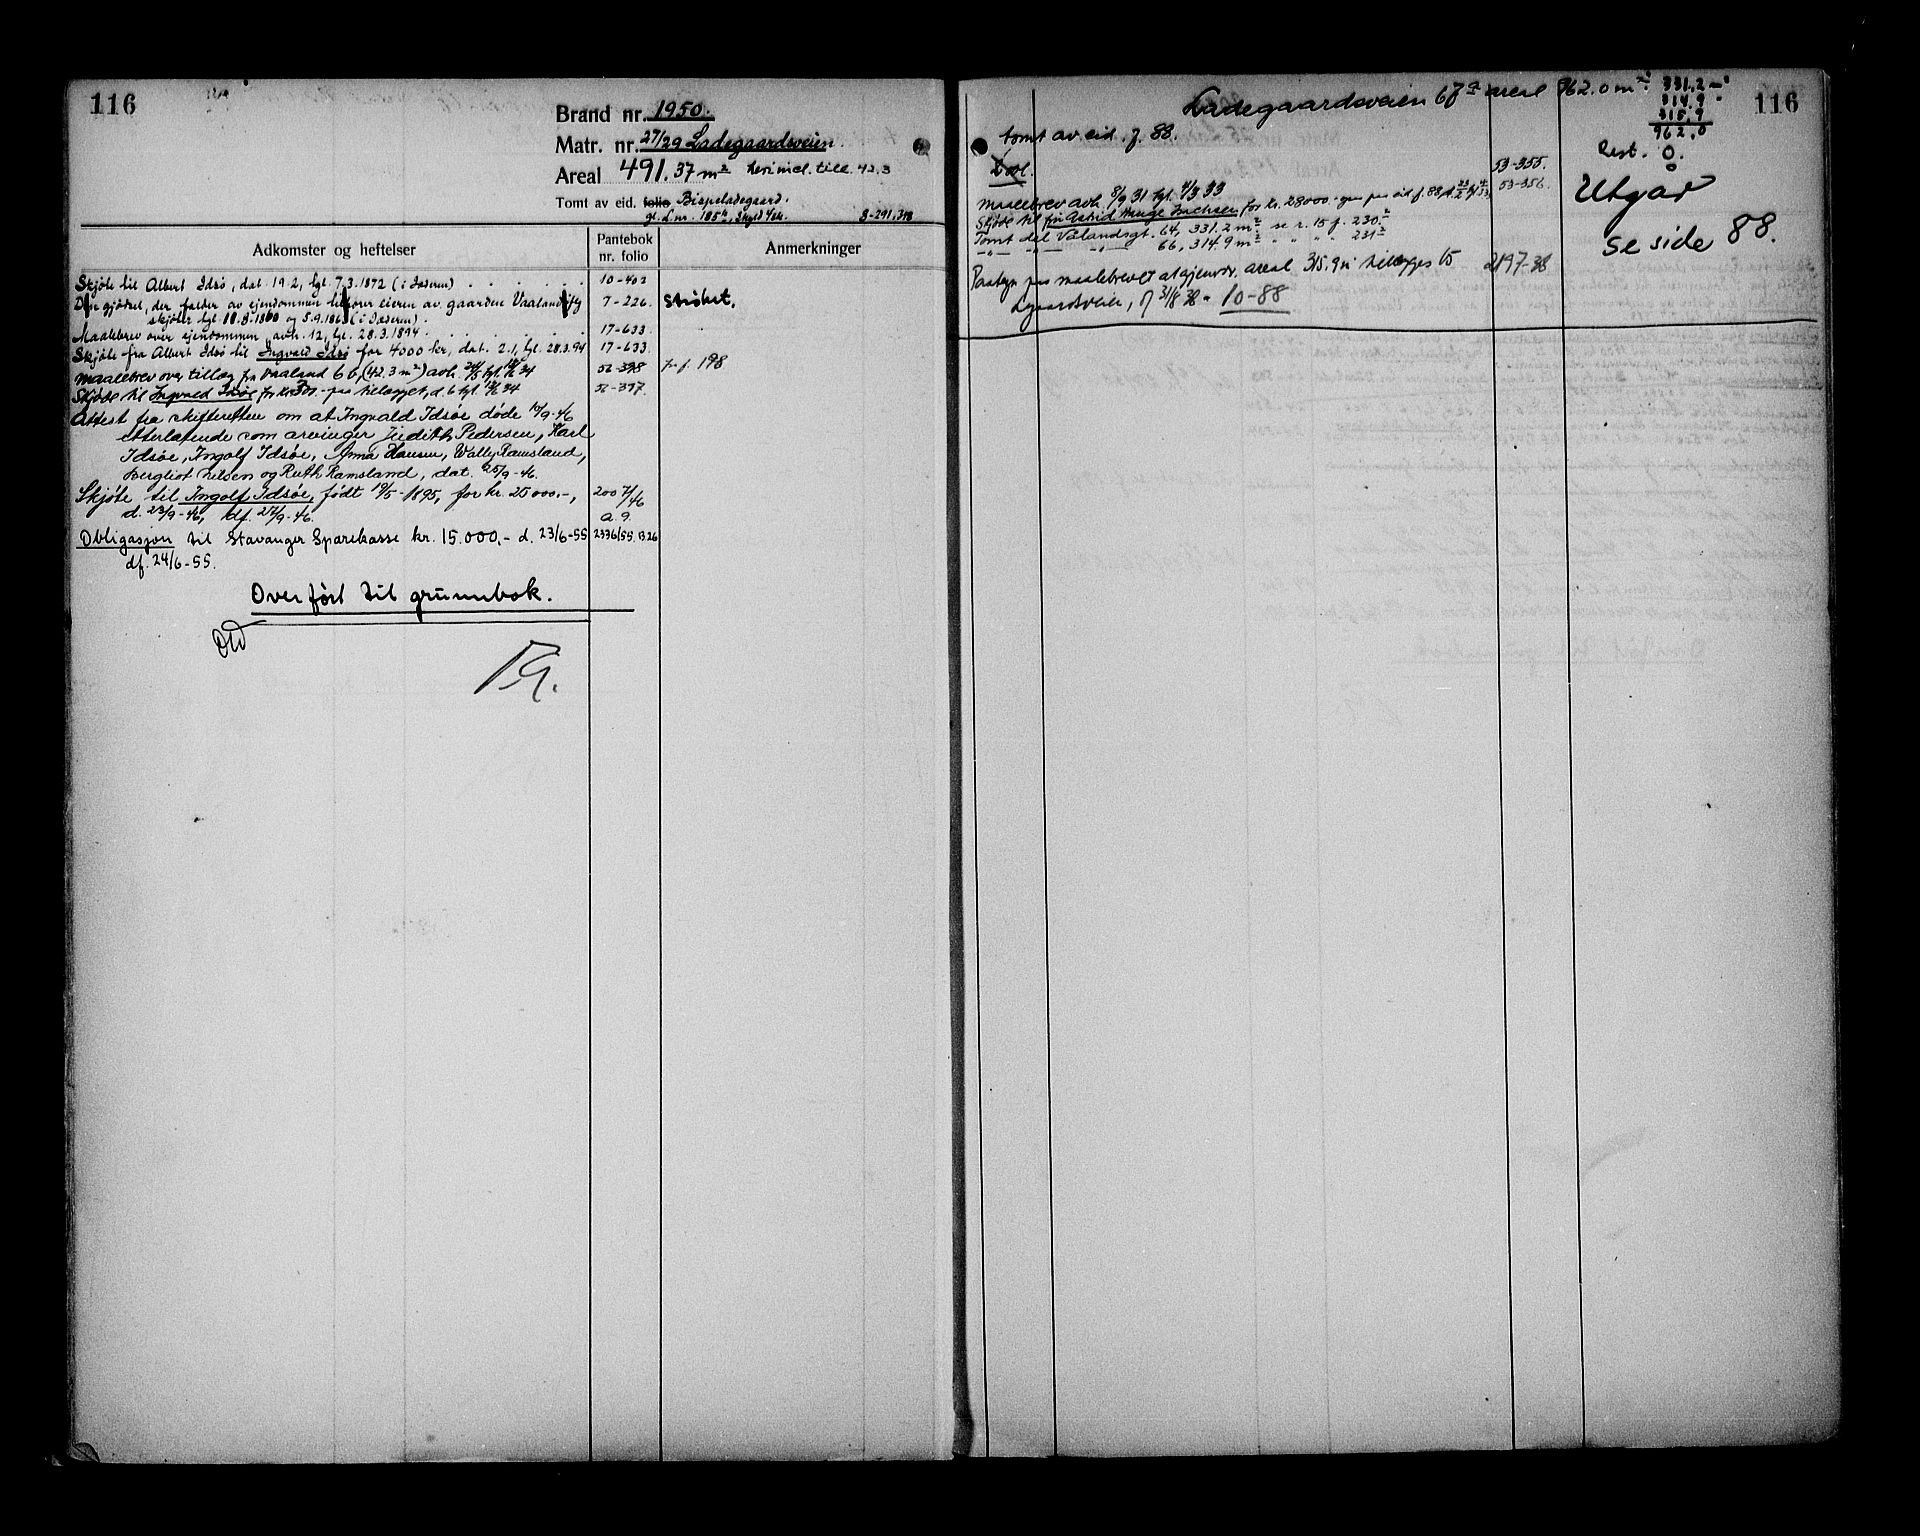 116
Brand nr. 1950.
Matr. nr. 27/29 Ladegaardsveien.
Areal 491.37 m² heri incl. till. 42.3
Tomt av eid. folio Bispeladegaard.
gl. L.nr. 185 3-291,318
Adkomster og heftelser
Pantebok
nr. folio
Anmerkninger
Skjøte til Albert Idsø, dat. 19.2, lgl. 7.3.1872 (i Jæderen) 10-402
gjødsel, der falder av ejendommen tilhører eieren av gaarden Vaaland 7-226. Strøket.
skjøter lgl. og (i Jæderen).
Maalebrev over ejendommen, avh. 12, lgl. 28.3.1894 17-633.
Skjøte fra Albert Idsø til Ingvald Idsø for 4000 kr, dat. 2.1, lgl. 28.3.94 17-633.
Maalebrev over tillæg fra Vaaland 6b, (42.3 m²) avh. tgl. 34 56-398 fr. f. 198
Skjøte til Ingvald Idsøe for kr. 300.- paa tillægget, d. 6 tgl. 34 56-397.
Attest fra skifteretten om at Ingvald Idsøe døde 10/9-46
etterlatende som arvinger Judith Pedersen, Karl
Idsøe, Ingolf Idsøe, Anna Hansen, Wally Ramsland,
Bergliot Nielsen og Ruth Ramsland, dat. 25/9-46.
Skjøte til Ingolf Idsøe, født 1895, for kr. 25000.-, 2007/46
d. 23/9-46, df. 27/9-46. a.9.
Obligasjon til Stavanger Sparekasse kr. 15.000.- d. 23/6-55 2336/55. B26
df. 24/6-55.
Overført til grunnbok.
116
Ladegaardsveien 67a areal 962.0 m²
331.2
314.9
315.9
962.0
Tomt av eid. f. 88.
Rest. 0.
0
53-355.
Maalebrev avh. 8/9 31 tgl. 4/3 33 53-356.
Utgår
Skjøte til fru Astrid for kr. 28000.- paa eid. f. 88
Tomt del Valandsgt. 64, 331.2 m² se r. 15 f. 230.
" " 66, 314.9 m² " " " 231
se side 88.
Paategn. paa maalebrevet at gjenv. areal 315.9 m² tillegges 65 2197-38
Lgaardsveien, 31/8 38. 10-88